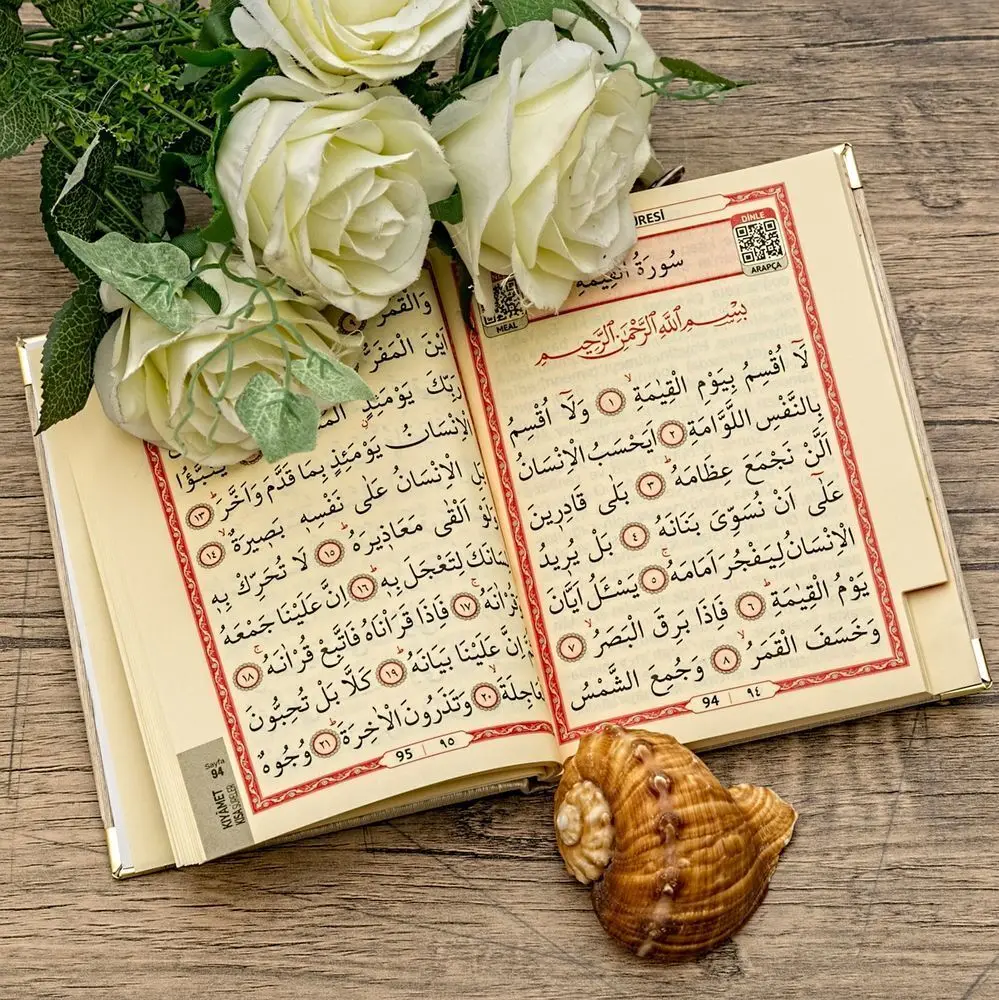 DİNLE
ARAPÇA
سُورَةُ الْقِيٰمَةِ
MEAL
بِسْمِ اللّٰهِ الرَّحْمٰنِ الرَّحِيمِ
لَٓا اُقْسِمُ بِيَوْمِ الْقِيٰمَةِۙ ﴿١﴾ وَلَٓا اُقْسِمُ
بِالنَّفْسِ اللَّوَّامَةِ ﴿٢﴾ اَيَحْسَبُ الْاِنْسَانُ
اَلَّنْ نَجْمَعَ عِظَامَهُۜ ﴿٣﴾ بَلٰى قَادِرِينَ
عَلٰٓى اَنْ نُسَوِّيَ بَنَانَهُ ﴿٤﴾ بَلْ يُرِيدُ
الْاِنْسَانُ لِيَفْجُرَ اَمَامَهُۚ ﴿٥﴾ يَسْـَٔلُ اَيَّانَ
يَوْمُ الْقِيٰمَةِۜ ﴿٦﴾ فَاِذَا بَرِقَ الْبَصَرُۙ ﴿٧﴾
وَخَسَفَ الْقَمَرُۙ ﴿٨﴾ وَجُمِعَ الشَّمْسُ
94 | ٩٤
وَالْقَمَرُ
اَيْنَ الْمَفَرُّ
رَبِّكَ يَوْمَئِذٍ
يُنَبَّؤُا
الْاِنْسَانُ يَوْمَئِذٍ بِمَا قَدَّمَ وَاَخَّرَۜ ﴿١٣﴾
بَلِ الْاِنْسَانُ عَلٰى نَفْسِهِ بَصِيرَةٌۙ ﴿١٤﴾
وَلَوْ اَلْقٰى مَعَاذِيرَهُۜ ﴿١٥﴾ لَا تُحَرِّكْ بِهِ
لِسَانَكَ لِتَعْجَلَ بِهِۜ ﴿١٦﴾ اِنَّ عَلَيْنَا جَمْعَهُ
وَقُرْاٰنَهُۚ ﴿١٧﴾ فَاِذَا قَرَاْنَاهُ فَاتَّبِعْ قُرْاٰنَهُۚ ﴿١٨﴾
اِنَّ عَلَيْنَا بَيَانَهُۜ ﴿١٩﴾ كَلَّا بَلْ تُحِبُّونَ
الْعَاجِلَةَۙ ﴿٢٠﴾ وَتَذَرُونَ الْاٰخِرَةَۜ ﴿٢١﴾ وُجُوهٌ
95 | ٩٥
Sayfa
94
KIYÂMET
KISA SURELER